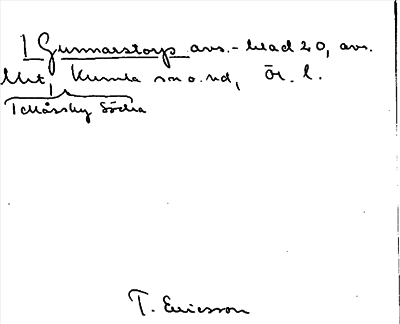 1 Gunnarstorps avs.-blad 20, avs.
Utt, Kumla sn o. hd, Ör. l.
Tallåssby Södra
T. Ericsson